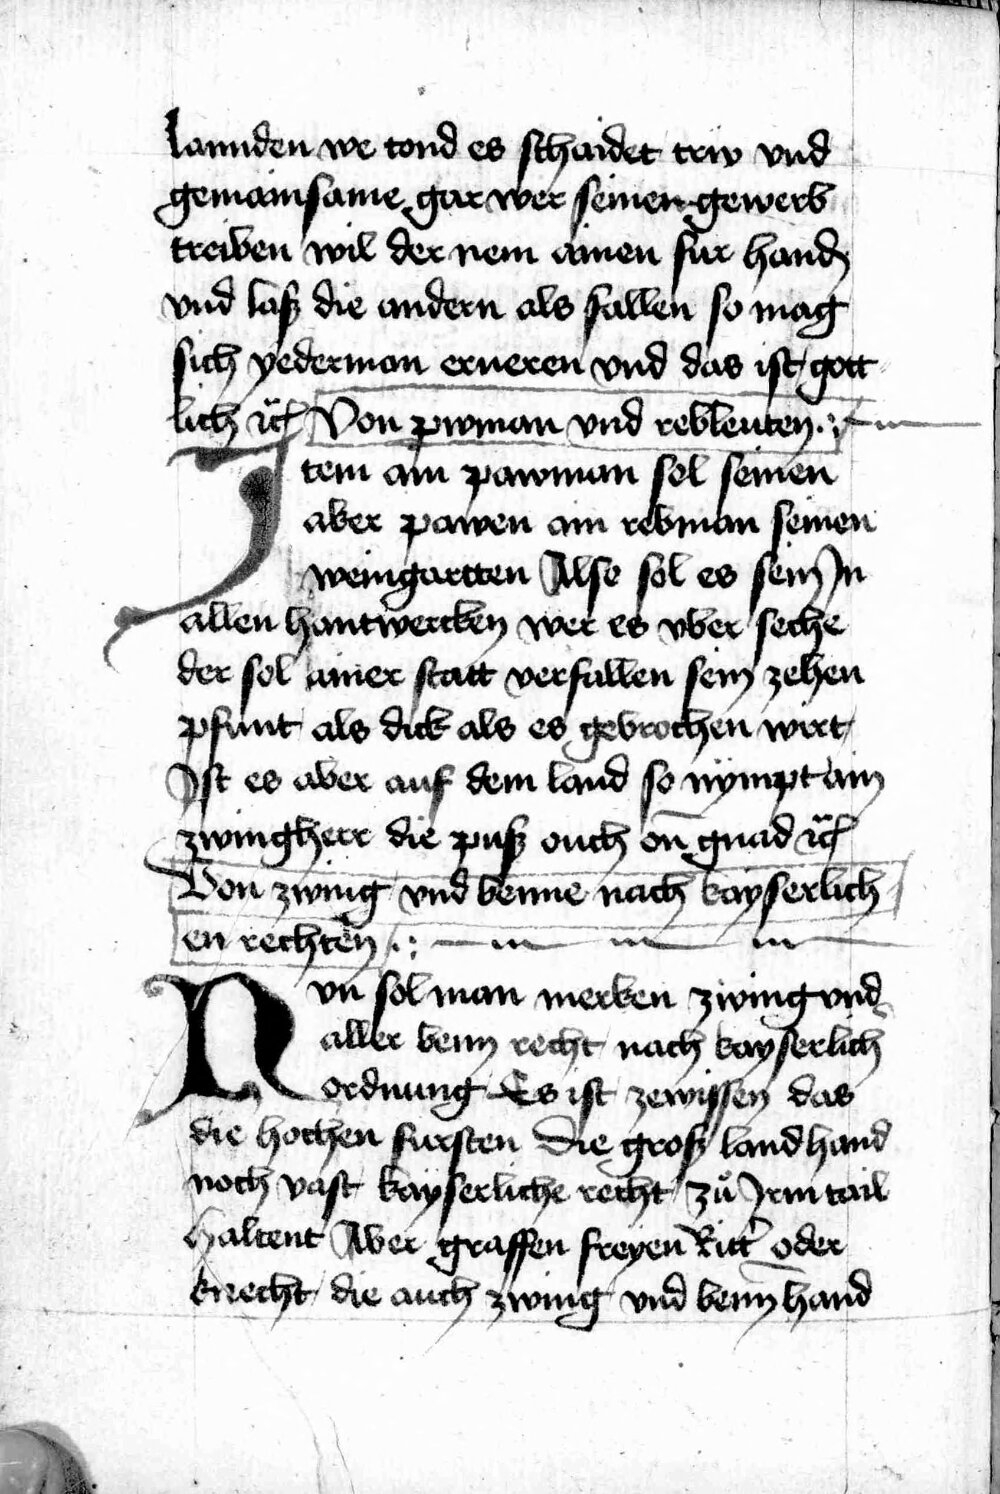 lannden we tond es schaidet trw vnd
gemainsame gar wer seinen gewerb
treiben wil der nem ainen fur hand
vnd lass die andern als fallen so mag
sich yederman erneren vnd das ist gott
lich ꝛc Von pwman vnd rebleuten
Item ain pawman sol seinen
aber pawen ain rebman seinen
weingartten Alse sol es sein In
allen hantwercken wer es vber seche
der sol ainer statt verfallen sein zehen
pfunt als dick als es gebrochen wirt
Ist es aber auf dem land so nympt ain
zwingherr die puss ouch on gnad ꝛc
Von zwing vnd benne nach kayserlich
en rechten
Nvn sol man merken zwing vnd
aller benn recht nach kayserlich
ordnung Es ist zewissen das
die hochen fursten die gross land hand
noch vast kayserliche recht zů Irm tail
haltent Aber graffen freyen Ritt̛ oder
knecht die auch zwing vnd benn hand